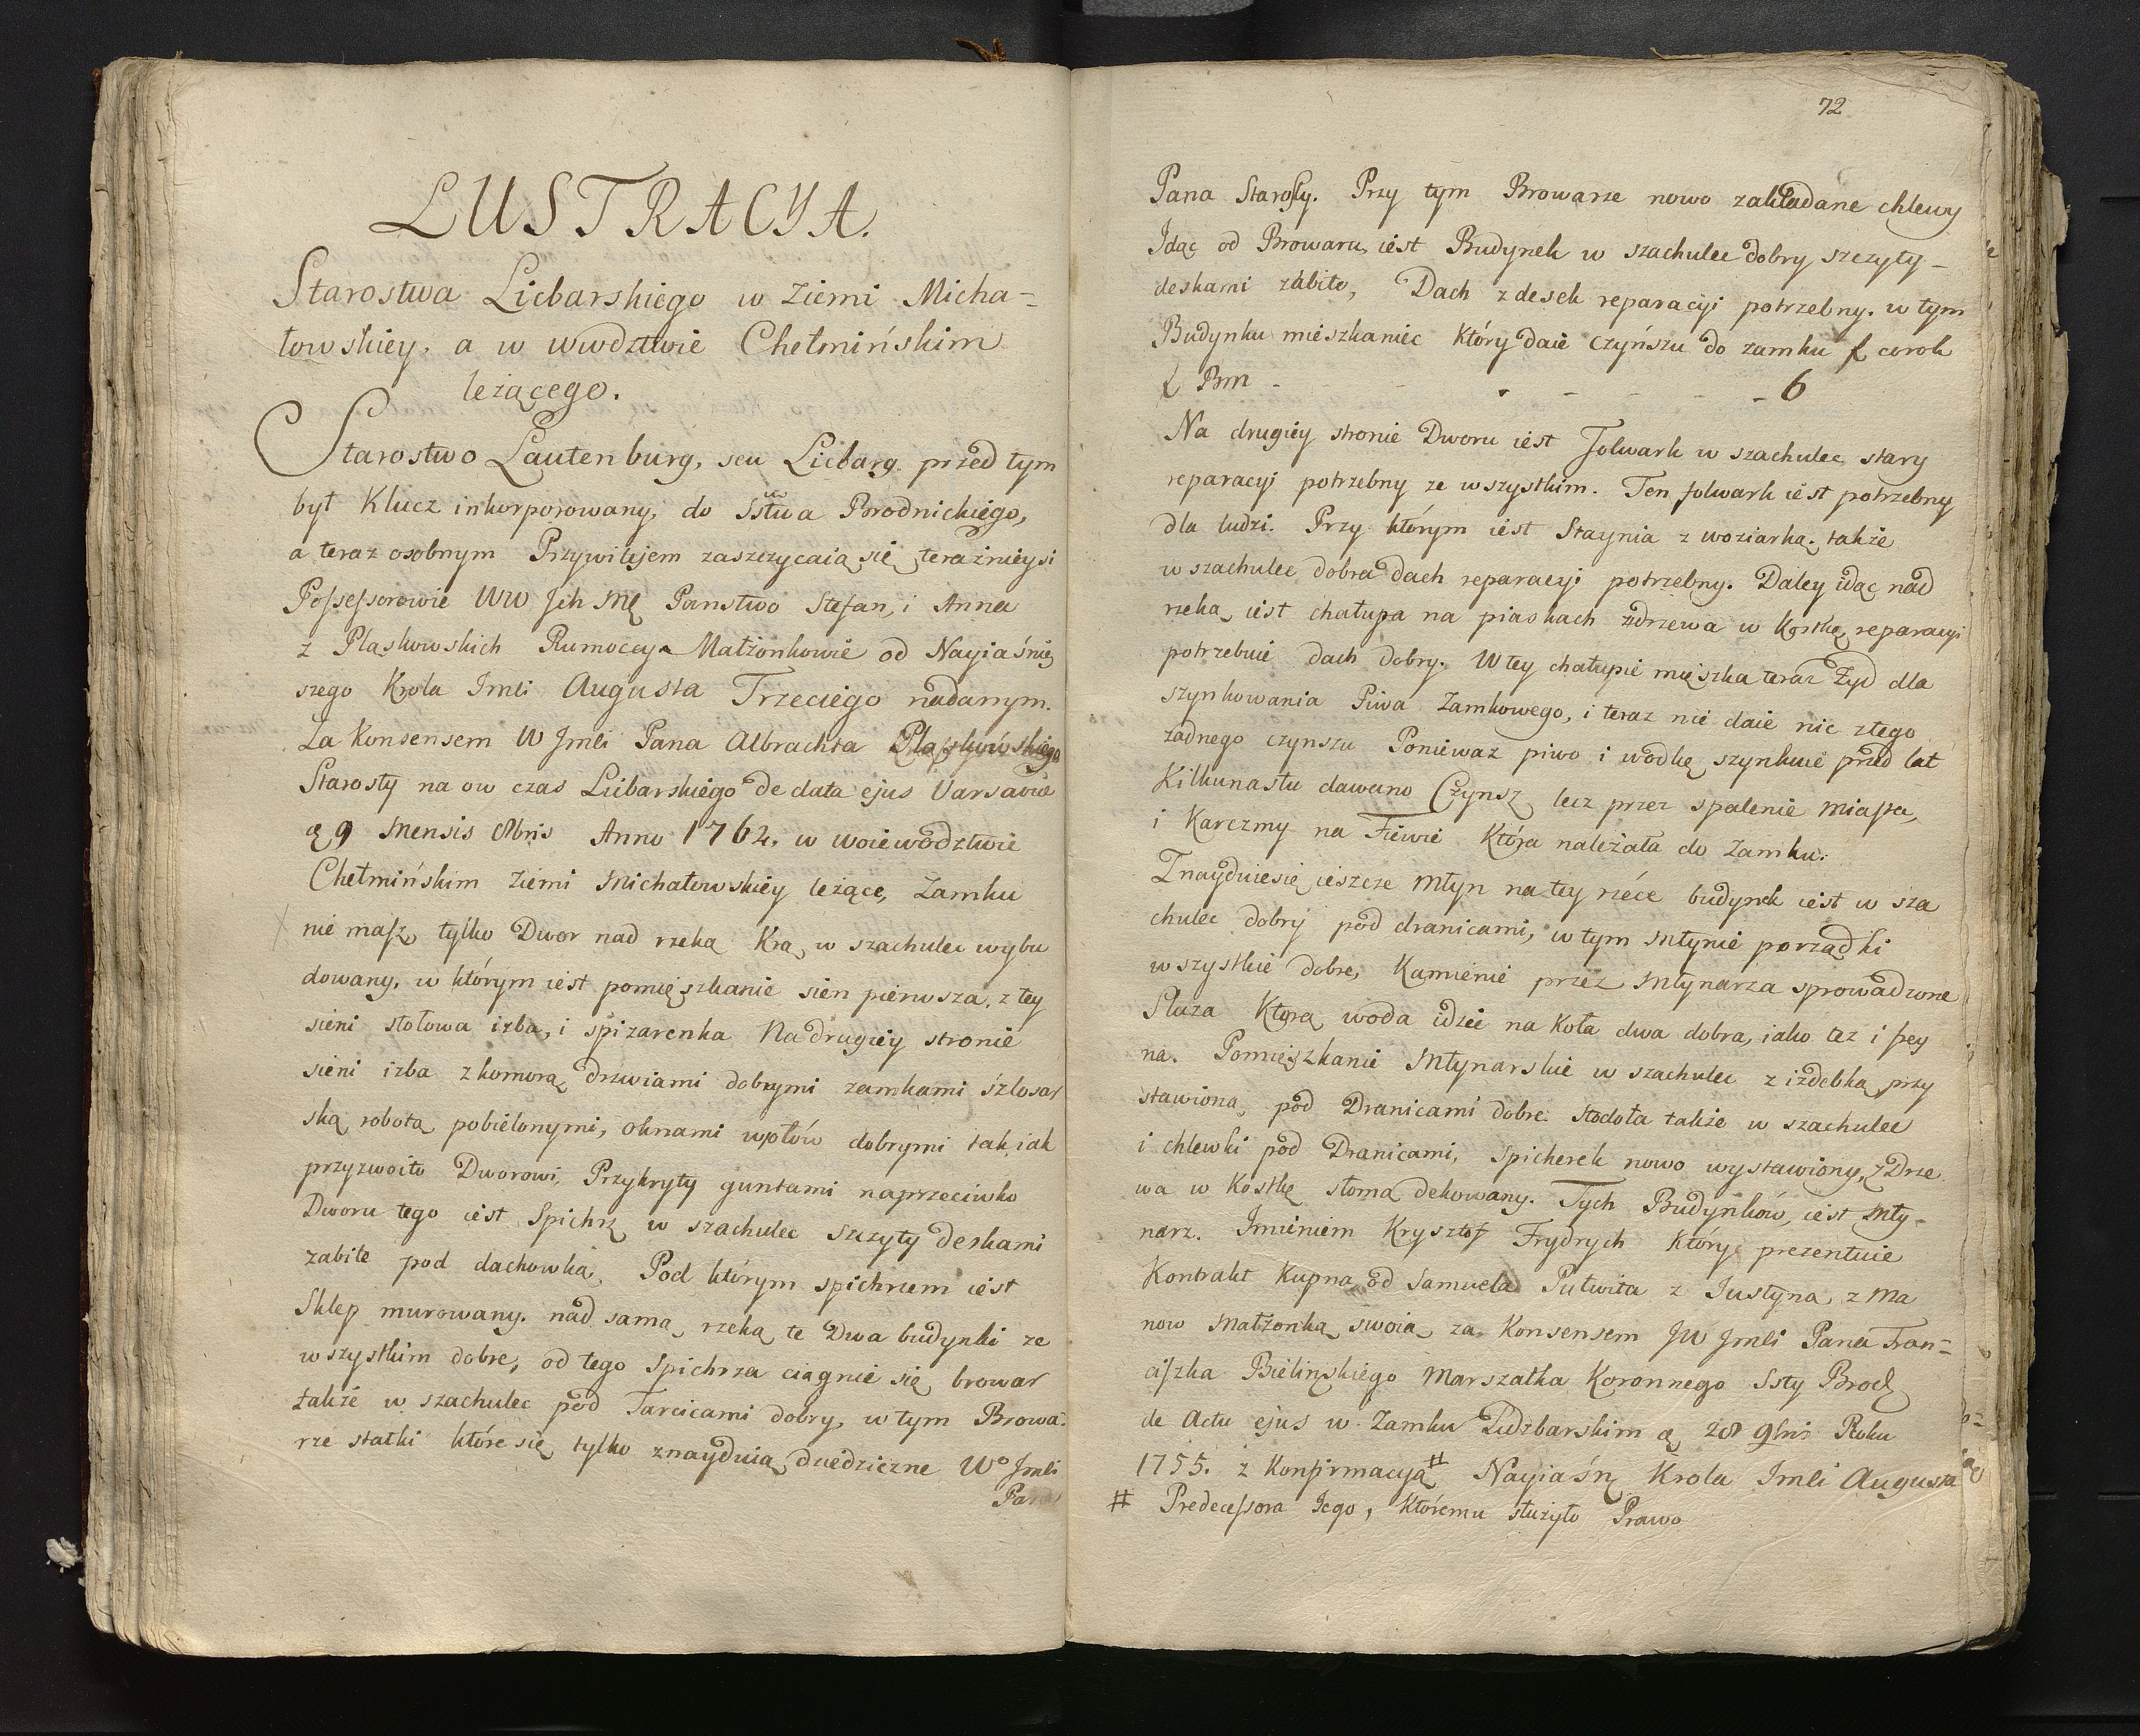 LUSTRACYA.
Starostwa Licbarskiego w Ziemi Micha=
łowskiey. a w wwdztwie Chełmińskim
leżącego.
Starostwo Lautenburg, seu Licbarg przed tym
był Klucz inkorporowany, do Sstwa Brodnickiego,
a teraz osobnym Przywilejem zaszczycaią się teraźnieysi
Possessorowie WW Jch Mę Panstwo Stefan, i Anna
z Pląskowskich Rumoccy Małżonkowie od Nayiaśniey
szego Krola Jmći Augusta Trzeciego nadanym.
Za Konsensem W Jmći Pana Albrachta Pląskowskiego
Starosty na ow czas Licbarskiego de data ejus Varsavia
9 Mensis 8bris Anno 1762. w Woiewodztwie
Chełmińskim Ziemi Michałowskiey leżące, Zamku
nie masz tylko Dwor nad rzeką Krą w szachulec wybu
dowany, w którym iest pomięszkanie sien pierwsza. z tey
sieni stołowa izba, i spizarenka Na drugiey stronie
sieni izba z komorą drzwiami dobrymi zamkami szlosar
ską robotą pobielonymi, oknami wpołów dobrymi tak, iak
przyzwoito Dworowi, Przykryty guntami naprzeciwko
Dworu tego iest Spichrz w szachulec szczyty deskami
zabite pod dachowką. Pod którym spichrzem iest
Sklep murowany. nad samą rzeką te Dwa budynki ze
wszystkim dobre, od tego Spichrza ciągnie się browar
także w szachulec pod Tarcicami dobry, w tym Browa=
rze statki które się tylko znayduią dziedziczne Wo Jmći
Pana
72
Pana Starosty. Przy tym Browarze nowo zakładane chlewy
Idąc od Browaru, iest Budynek w szachulec dobry szczyty
deskami zabito, Dach z desek reparacyi potrzebny. w tym
Budynku mieszkaniec który daie czyńszu do zamku co rok
Prm - - - - - 6
Na drugiey stronie Dworu iest Folwark w szachulec stary
reparacyi potrzebny ze wszystkim. Ten folwark iest potrzebny
dla ludzi. Przy którym iest Staynia z woziarką. także
w szachulec dobra dach reparacyi potrzebny. Daley idąc nad
rzeką, iest chałupa na piaskach z drzewa w Kostkę, reparacyi
potrzebuie dach dobry. W tey chałupie mięszka teraz Żyd dla
szynkowania Piwa Zamkowego, i teraz nie daie nic z tego
zadnego czynszu Ponieważ piwo i wodkę szynkuie przed lat
Kilkunastu dawano Czynsz lecz przez spalenie miasta,
i Karczmy na Fiewie Która należała do Zamku.
Znayduie się ieszcze Młyn na tey rzéce budynek iest w sza
chulec dobry pod dranicami, w tym Młynie porządki
wszystkie dobre, Kamienie przez Młynarza sprowadzone
Sluza Którą woda idzie na Koła dwa dobra, iako tez i frey
na. Pomięszkanie Młynarskie w szachulec z izdebką przy
stawioną, pod Dranicami dobre. Stodoła także w szachulec
i chlewki pod Dranicami, Spicherek nowo wystawiony, z Drze
wa w Kostkę słomą dekowany. Tych Budynków, iest Mły-
narz. Imieniem Krysztof Frydrych który prezentuie
Kontrakt Kupna od Samuela Putwita z Justyną z Ma
now Małżonką swoią, za Konsensem JW Jmći Pana Fran=
ciszka Bielinskiego Marszałka Koronnego Ssty Brod
de Actu ejus w Zamku Lidzbarskim 28 9bris Roku
1755. z Konfirmacyą # Nayiaśn Krola Jmći Augusta
# Predecessora Jego, któremu służyło Prawo